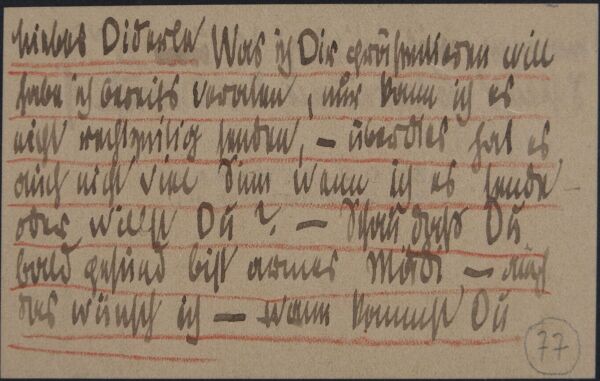 liebes Diderle Was ich Dir präsentieren will
habe ich bereits verraten, nur kann ich es
nicht rechtzeitig senden, — überdies hat es
auch nicht viel Sinn wenn ich es sende
oder willst Du? — Schau dass Du
bald gesund bist armes Mädi — auch
das wünsch ich — wann kommst Du
77